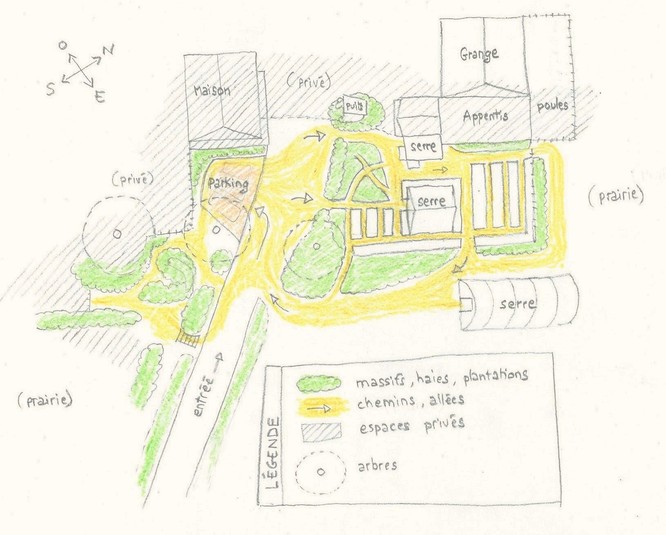 O
N
S
E
Maison
(privé)
Puits
Grange
Appentis
poules
serre
(privé)
Parking
serre
(prairie)
serre
(prairie)
entréé
LÉGENDE
massifs, haies, plantations
chemins, allées
espaces privés
arbres